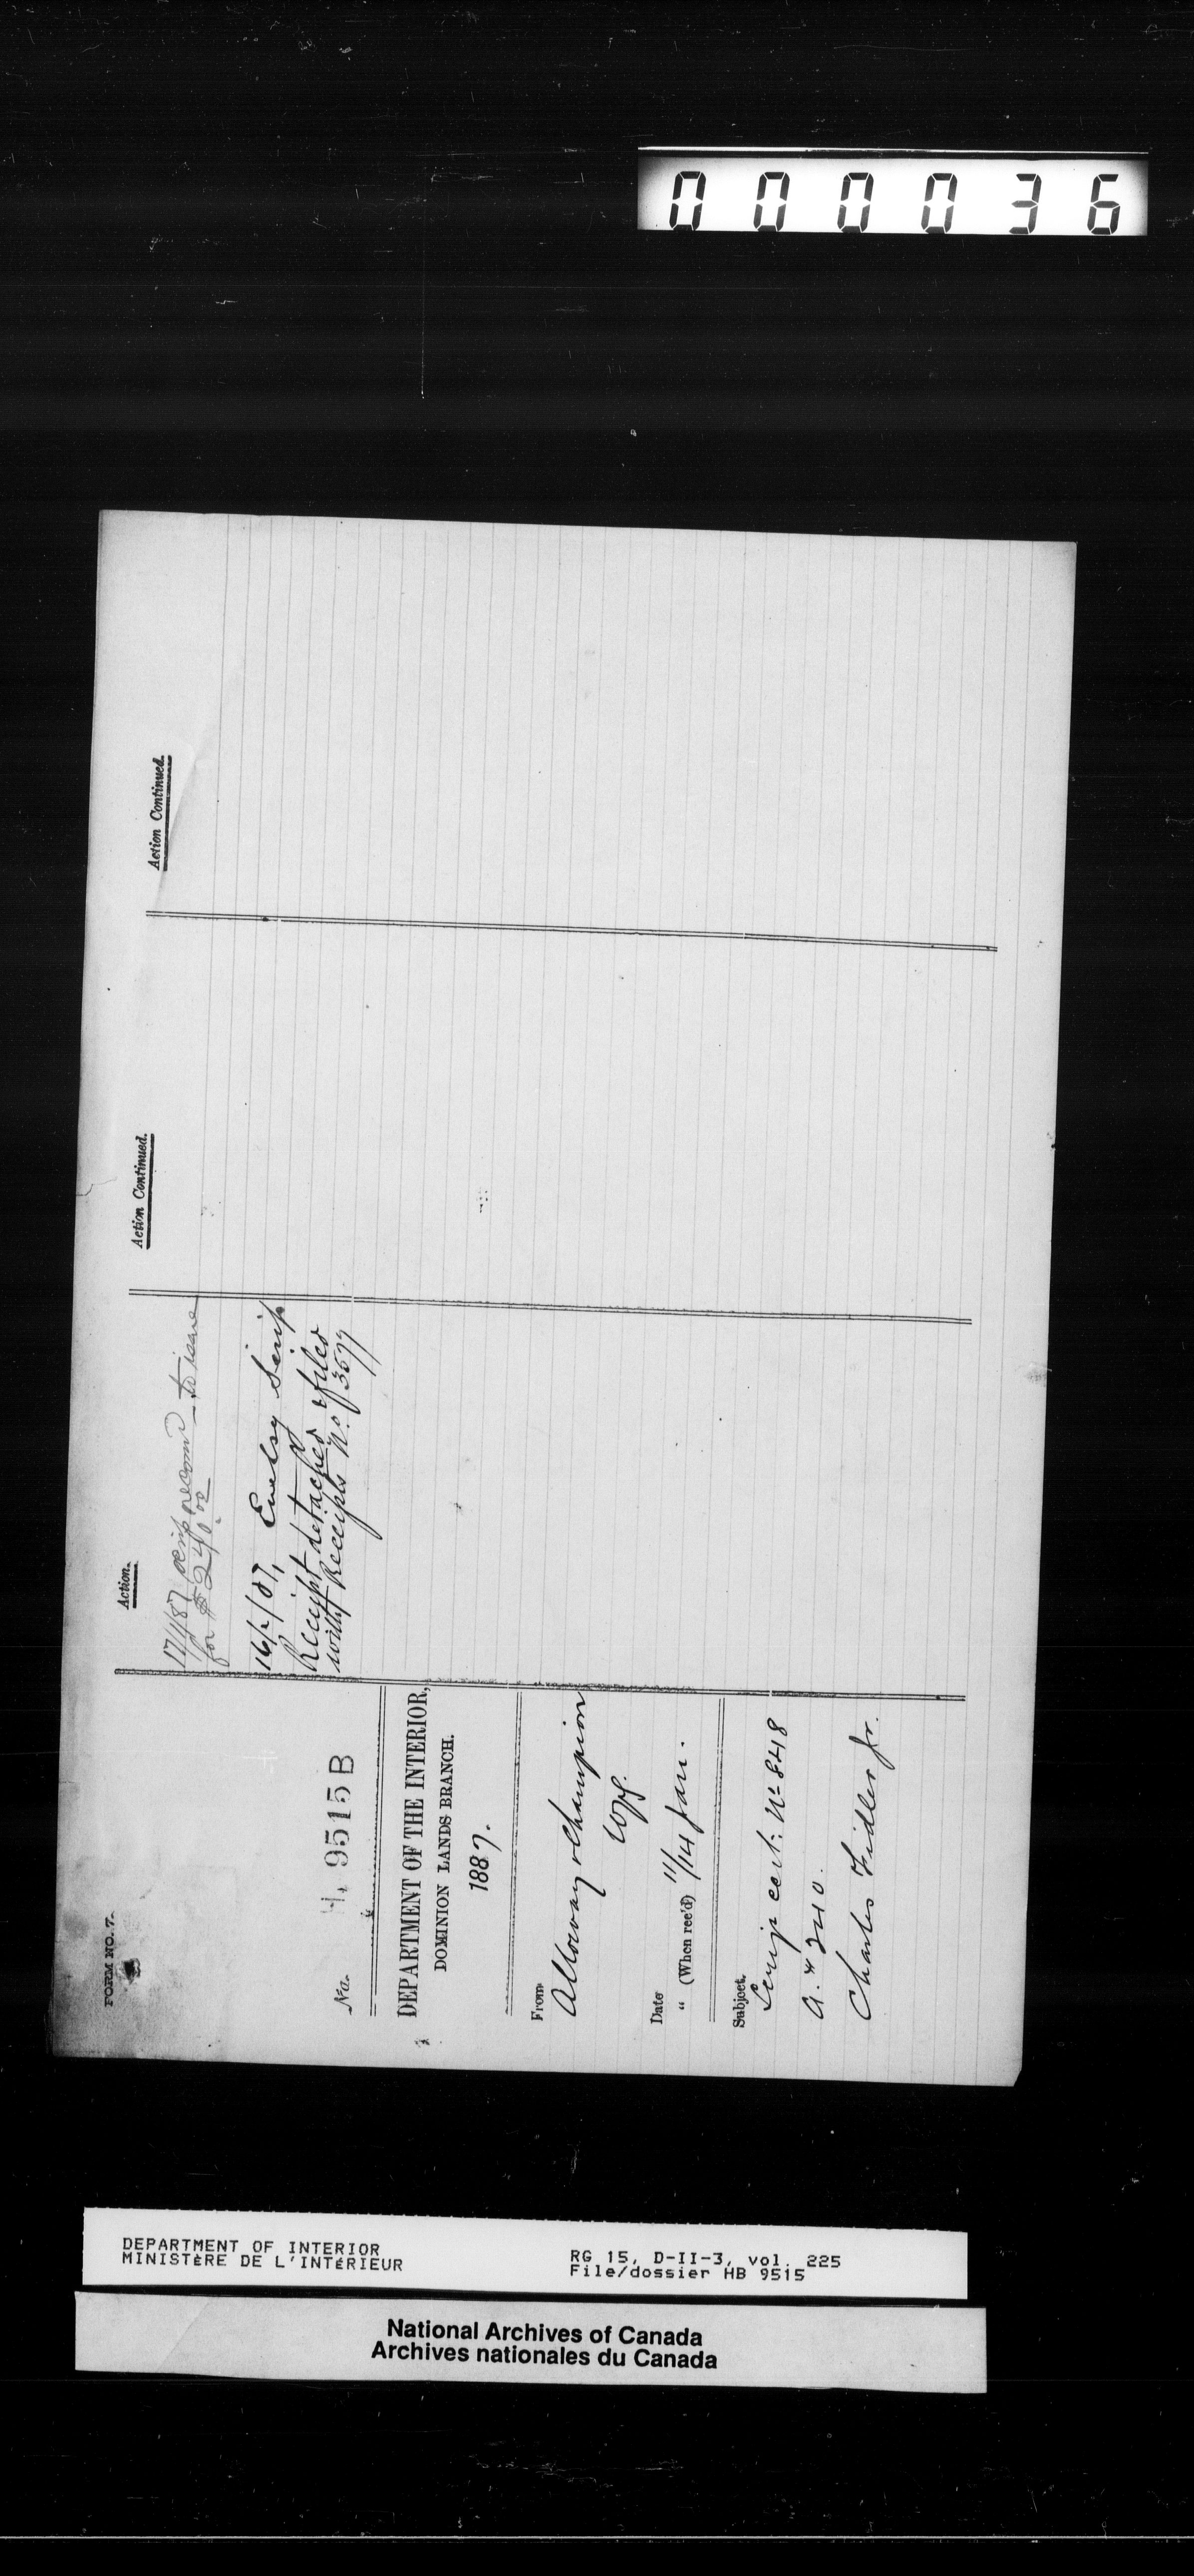 000036
FORM NO. 7.
No. H. 9515 B
DEPARTMENT OF THE INTERIOR,
DOMINION LANDS BRANCH.
1887.
From Alloway & Champion
Wpg.
Date 11/14 Jan.
" (When rec'd)
Subject.
Scrip cert: No 848
A. $240.
Charles Fidler Jr.
Action.
17/1/87 scrip recomd to issue
for $240.00
16/2/87, Scrip
Receipt detached & filed
with Receipts No. 3677
Action Continued.
Action Continued.
DEPARTMENT OF INTERIOR
MINISTÈRE DE L'INTÉRIEUR
RG 15, D-II-3, vol. 225
File/dossier HB 9515
National Archives of Canada
Archives nationales du Canada